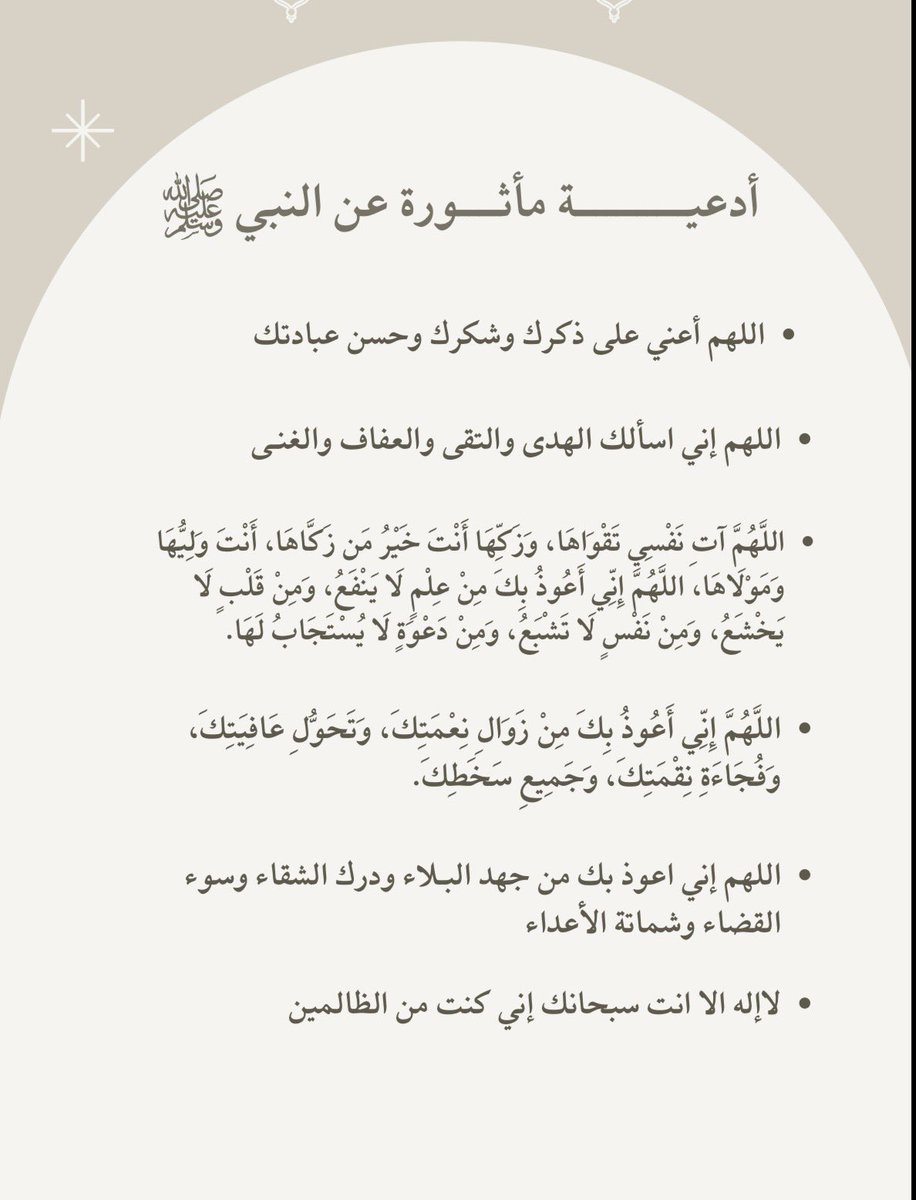 أدعيـــــــــــة مأثــــورة عن النبي ﷺ
• اللهم أعني على ذكرك وشكرك وحسن عبادتك
• اللهم إني اسألك الهدى والتقى والعفاف والغنى
• اللَّهُمَّ آتِ نَفْسِي تَقْوَاهَا، وَزَكِّهَا أَنْتَ خَيْرُ مَن زَكَّاهَا، أَنْتَ وَلِيُّهَا
وَمَوْلَاهَا، اللَّهُمَّ إِنِّي أَعُوذُ بِكَ مِنْ عِلْمٍ لَا يَنْفَعُ، وَمِنْ قَلْبٍ لَا
يَخْشَعُ، وَمِنْ نَفْسٍ لَا تَشْبَعُ، وَمِنْ دَعْوَةٍ لَا يُسْتَجَابُ لَهَا.
• اللَّهُمَّ إِنِّي أَعُوذُ بِكَ مِنْ زَوَالِ نِعْمَتِكَ، وَتَحَوُّلِ عَافِيَتِكَ،
وَفُجَاءَةِ نِقْمَتِكَ، وَجَمِيعِ سَخَطِكَ.
• اللهم إني اعوذ بك من جهد البلاء ودرك الشقاء وسوء
القضاء وشماتة الأعداء
• لاإله الا انت سبحانك إني كنت من الظالمين